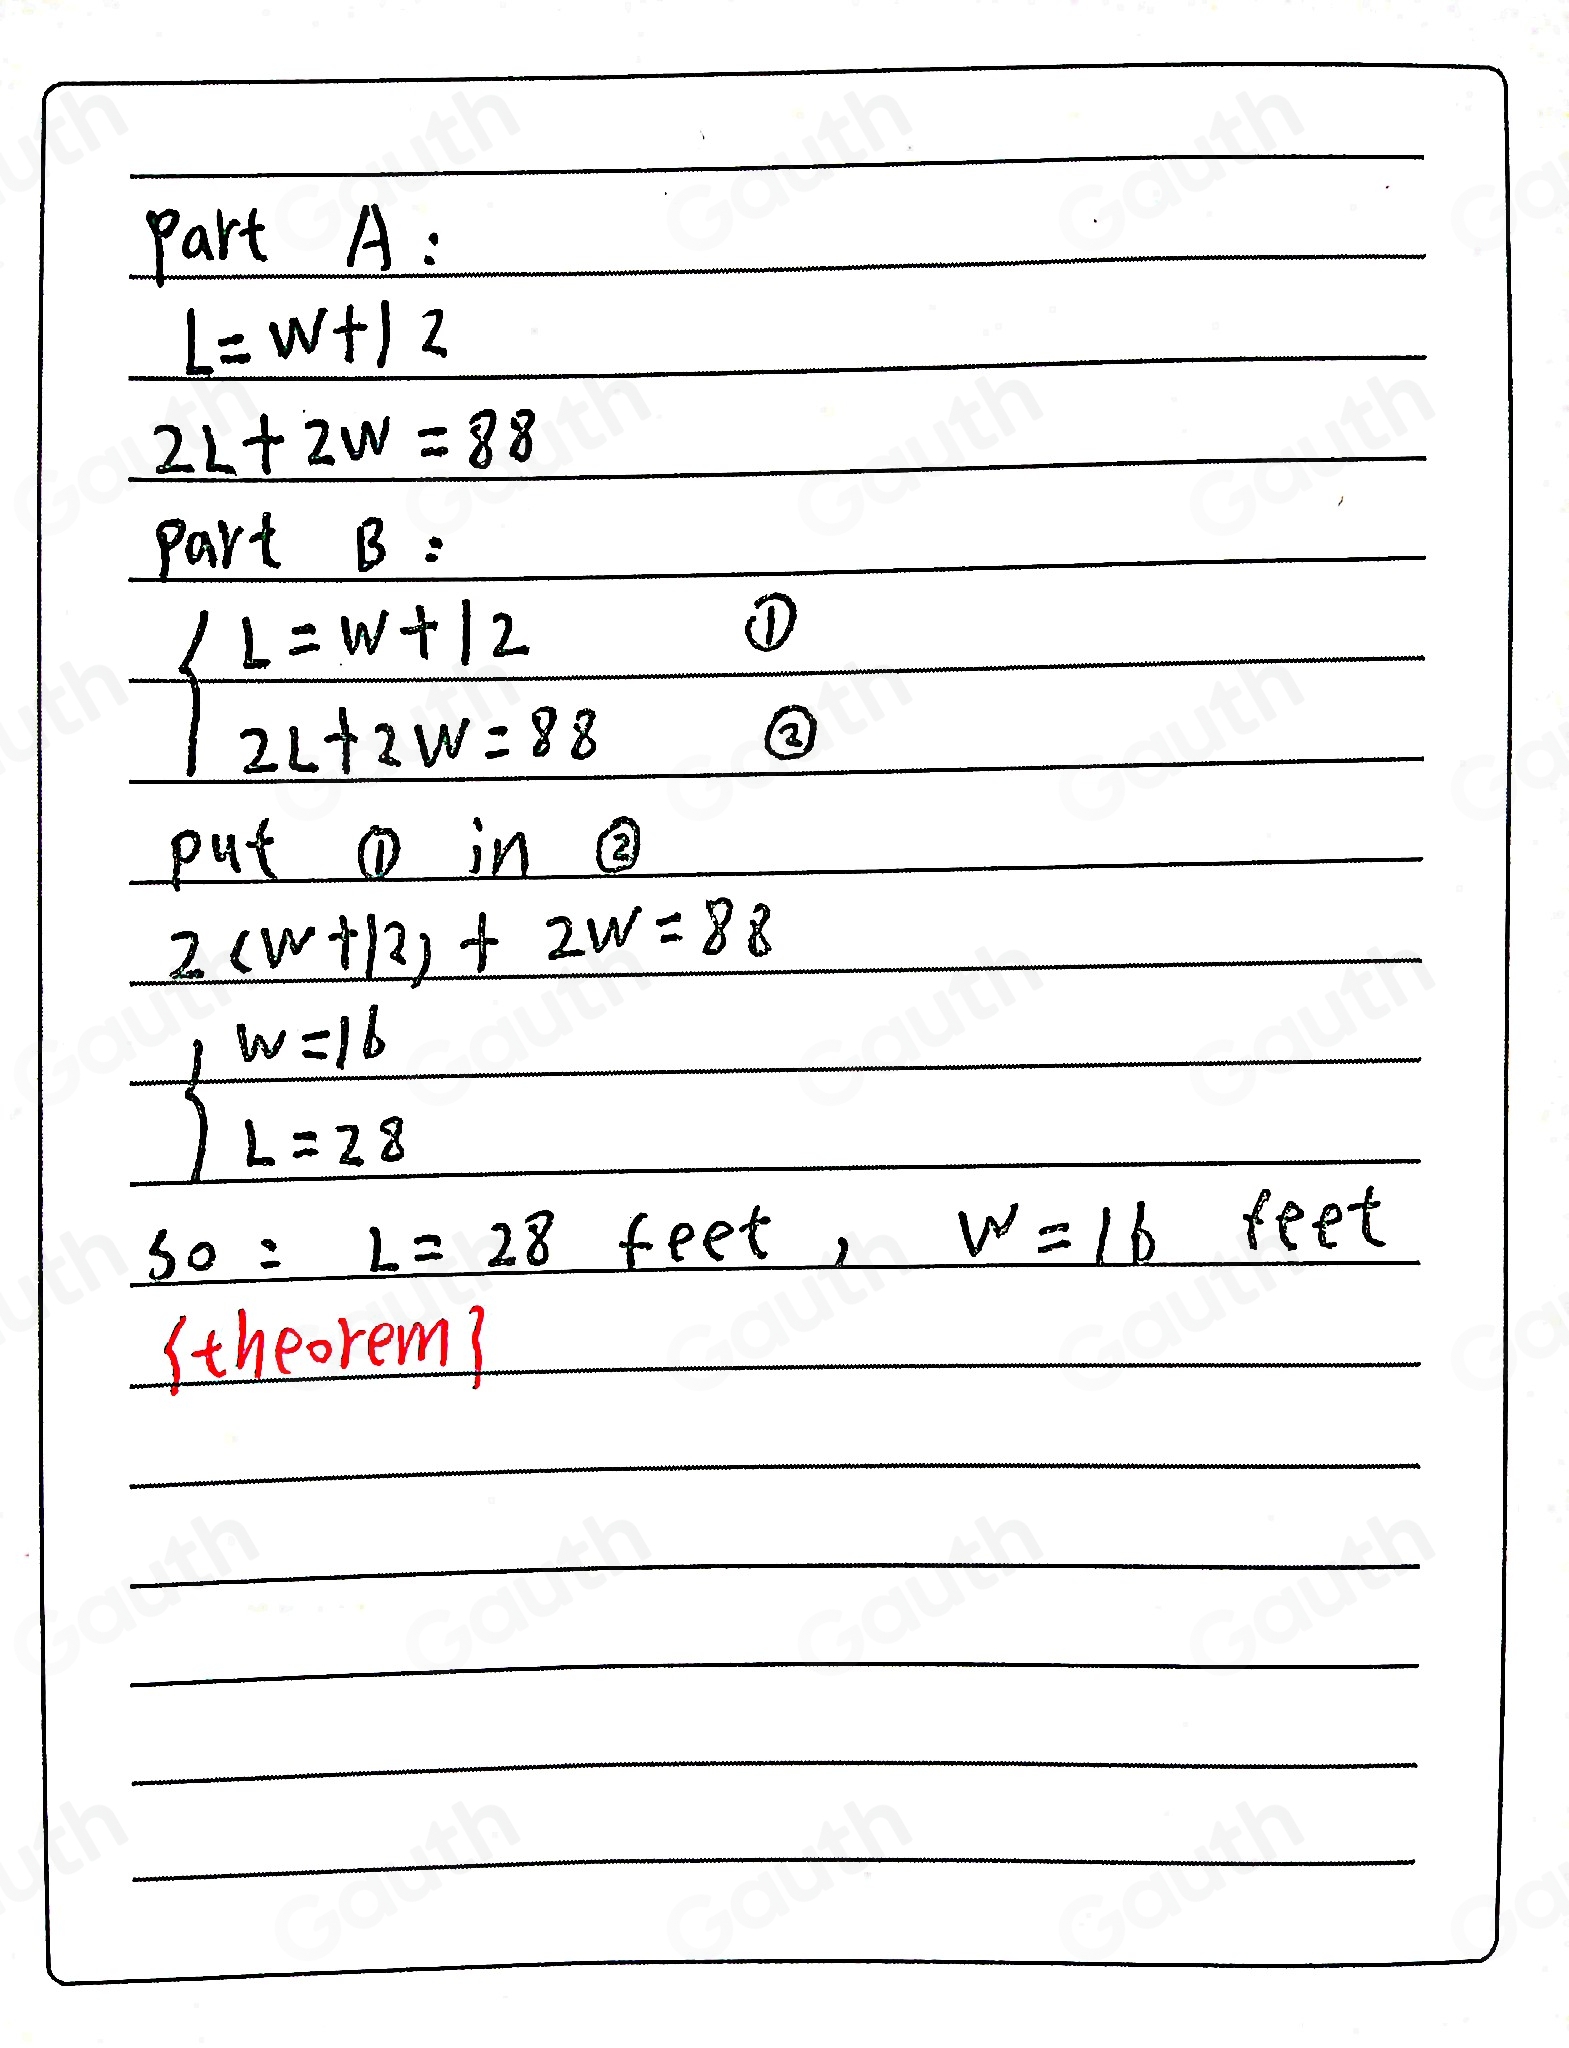 Part A:
L=W+12
2L+2W=88
Part B:
L=W+12 ①
2L+2W=88 ②
put ① in ②
2(W+12)+2W=88
W=16
L=28
So: L=28 feet, W=16 feet
{theorem}